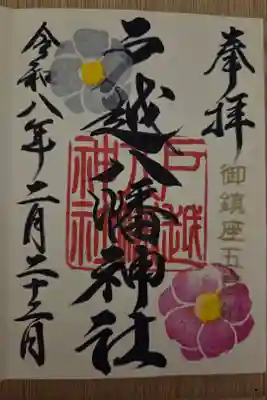 奉拝
御鎮座五
戸越八幡神社
戸越
八幡
神社
令和八年二月二十三日